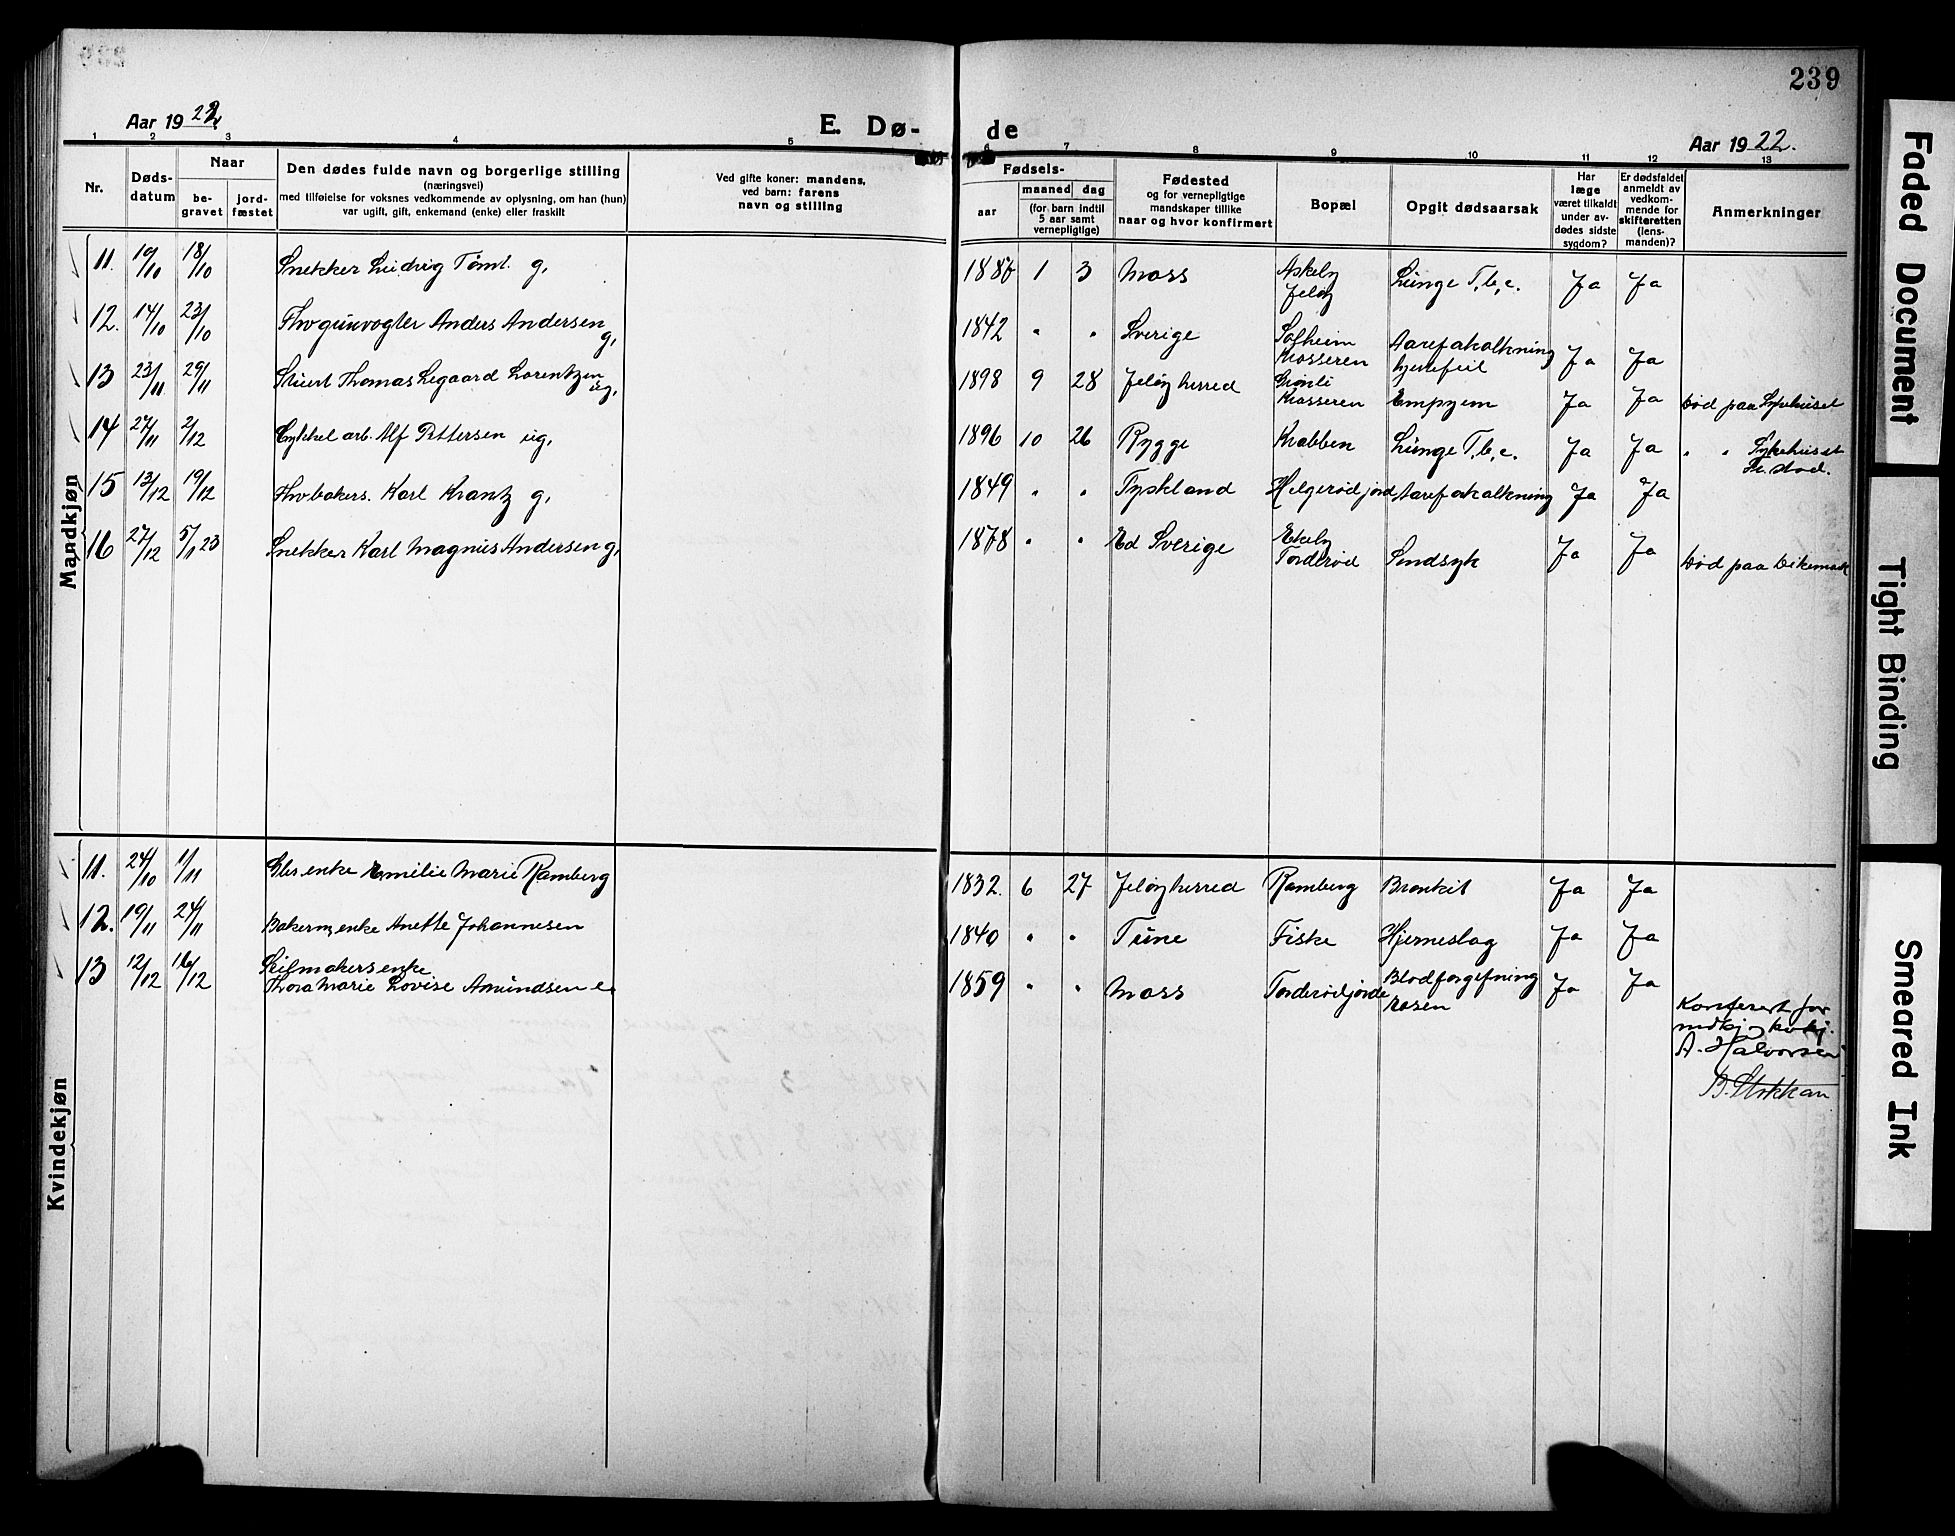 239
Aar 1922
E. Dø-
de
Aar 1922.
1 2 3 4 5 6 7 8 9 10 11 12 13
Nr.
Døds-
datum
Naar
be-
gravet
jord-
fæstet
Den dødes fulde navn og borgerlige stilling
(næringsvei)
med tilføielse for voksnes vedkommende av oplysning, om han (hun)
var ugift, gift, enkemand (enke) eller fraskilt
Ved gifte koner: mandens,
ved barn: farens
navn og stilling
Fødsels-
aar
maaned dag
(for barn indtil
5 aar samt
vernepligtige)
Fødested
og for vernepligtige
mandskaper tillike
naar og hvor konfirmert
Bopæl
Opgit dødsaarsak
Har
læge
været tilkaldt
under av-
dødes sidste
sygdom?
Er dødsfaldet
anmeldt av
vedkom-
mende for
skifteretten
(lens-
manden)?
Anmerkninger
Mandkjøn
11. 19/10 18/10 Snekker Ludvig Tømt. g, 1886 1 3 Moss Askeby Jeløy Lunge T.b.c. Ja Ja
12. 14/10 23/10 Anders Andersen g, 1842 " " Sverige Solheim Krosseren Aareforkalkning hjertefeil Ja Ja
13 23/11 29/11 Stuert Thomas Legaard Lorentzen ug, 1898 9 28 Jeløy herred Grønli Krosseren Empyem Ja Ja Død paa Sykehuset
14 27/11 2/12 Cykkel arb. Alf Pettersen ug, 1896 10 26 Rygge Krabben Lunge T.b.c. Ja Ja " " Sykehuset Fr.stad.
15 13/12 19/12 Karl Krantz g, 1849 " " Tyskland Helgerødjord Aareforkalkning Ja Ja
16 27/12 5/1 23 Snekker Karl Magnus Andersen g, 1878 " " Ed Sverige Ekeby Torderød Sindsyk Ja Ja Død paa Dikemark
Kvindekjøn
11. 24/10 1/11 Gbr.enke Emilie Marie Ramberg 1832. 6 27 Jeløy herred Ramberg Bronkit Ja Ja
12. 19/11 24/11 Bakerm,enke Anette Johannesen 1840 " " Tune Fiske Hjerneslag Ja Ja
13 12/12 16/12 Seilmakersenke
Thora Marie Lovise Amundsen e. 1859 " " Moss Torderødjorde Blodforgifning rosen Ja Ja
Konferert for
mdkj. og kvkj.
A. Halvorsen
B. Stokkan
Faded Document
Tight Binding
Smeared Ink